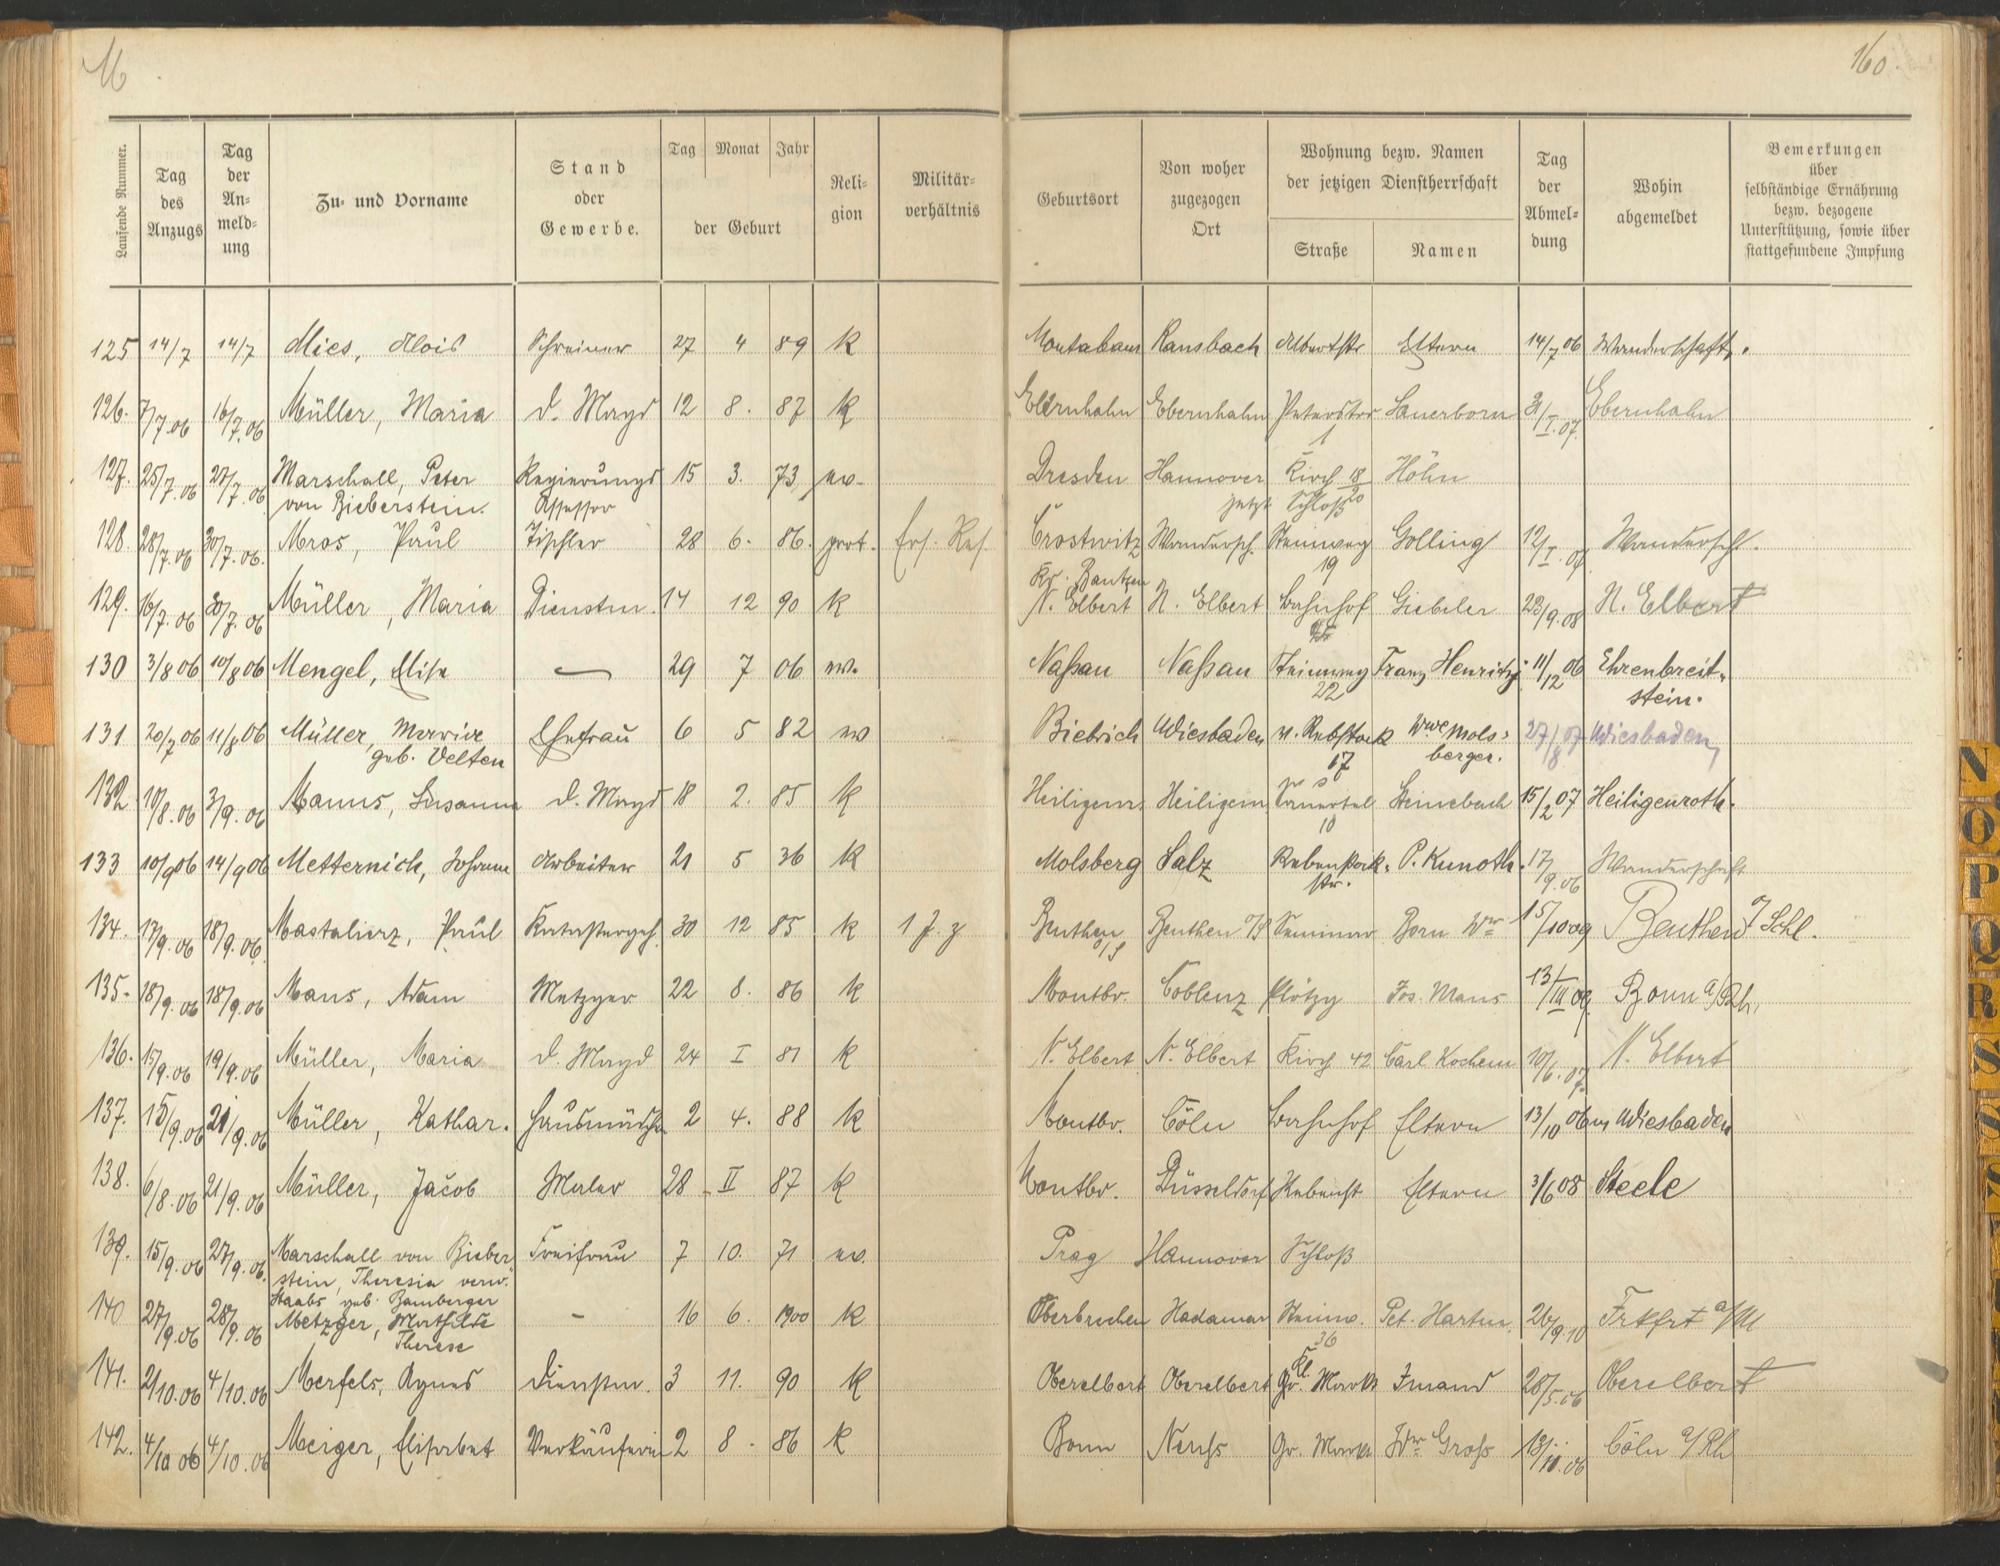 M
160.
Laufende Nummer.
Tag des Anzugs
Tag der An- meld- ung
Zu- und Vorname
Stand oder Gewerbe.
Tag Monat Jahr der Geburt
Reli- gion
Militär- verhältnis
Geburtsort
Von woher zugezogen Ort
Wohnung bezw. Namen der jetzigen Dienstherrschaft
Straße Namen
Tag der Abmel- dung
Wohin abgemeldet
Bemerkungen über selbständige Ernährung bezw. bezogene Unterstützung, sowie über stattgefundene Impfung
125 14/7 14/7 Mies, Alois Schreiner 27 4 89 k Montabaur Ransbach Albertstr Eltern 14/7 06 Wanderschaft.
126. 7/7.06 16/7.06 Müller, Maria d. Magd 12 8. 87 k Ebernhahn Ebernhahn Peterstor Sauerborn 31/I.07. Ebernhahn
1
127. 25/7.06 27/7.06 Marschall, Peter Regierungs 15 3. 73 ev. Dresden Hannover Kirch 18/20 Höhn
von Bieberstein. Assessor jetzt Schloß
128. 28/7.06 30/7.06. Mros, Paul Tischler 28 6. 86. prot. Ers. Res. Crostwitz Wandersch. Steinweg Golling 12/I.07 Wandersch.
Kr. Bautzen 19
129. 16/7.06 30/7.06 Müller, Maria Dienstm. 14 12 90 k N. Elbert N. Elbert Bahnhof Giebeler 23/9.08 N. Elbert
130 3/8 06 10/8 06 Mengel, Elise — 29 7 06 ev. Naßau Naßau Steinweg Franz Henritzy 11/12 06 Ehrenbreit-
22 stein.
131 20/7 06 11/8 06 Müller, Marie Ehefrau 6 5 82 ev Biebrich Wiesbaden v. Rebstock Wwe Mols- 27/8 07 Wiesbaden
geb. Velten 17 berger.
132 10/8.06 3/9.06 Manns, Susanna d. Magd 18 2. 85 k Heiligenr. Heiligenr. Sauertal Steinebach 15/2 07 Heiligenroth.
10
133 10/9 06 14/9 06 Metternich, Johann Arbeiter 21 5 36 k Molsberg Salz Rebenstock- P. Kunoth. 17/9.06 Wanderschaft
str.
134. 17/9.06 18/9.06. Mastalierz, Paul Katastergeh. 30 12 85 k 1 J. z Beuthen Beuthen O/S Seminar Born Wwe 15/10 09 Beuthen O/Schl.
O/S
135. 18/9.06 18/9.06 Mans, Adam Metzger 22 8. 86 k Montbr. Coblenz Plötzg Jos. Mans 13/III 09. Bonn a/Rh.
136. 15/9.06 19/9.06 Müller, Maria d. Magd 24 I 81 k N. Elbert N. Elbert Kirch 42 Carl Kochem 10/6.07. N. Elbert
137. 15/9.06 21/9.06 Müller, Kathar. Hausmädch 2 4. 88 k Montbr. Cöln Bahnhof Eltern 13/10 06 n. Wiesbaden
138. 6/8.06 21/9.06 Müller, Jacob Maler 28 II 87 k Montbr. Düsseldorf Rebenst Eltern 3/6 08 Steele
139. 15/9.06 27/9.06. Marschall von Bieber Freifrau 7 10. 71 ev. Prag Hannover Schloß
stein, Theresia verw.
Staabs geb. Bamberger
140 27/9.06 28/9.06 Metzger, Mathilde – 16 6. 1900 k Oberbrechen Hadamar Steinw. Pet. Hartm. 26/9.10 Frkfrt a/M
Therese 36
141. 2/10.06 4/10.06 Merfels, Agnes Dienstm. 3 11. 90 k Oberelbert Oberelbert Kl. Markt Imand 28/5.06 Oberelbert
142. 4/10 06 4/10.06 Meiger, Elisabet Verkäuferin 2 8. 86 k Bonn Neuss Gr. Markt Wwe Gross 13/10.06 Cöln a/Rh
N
O
P
Q
R
S